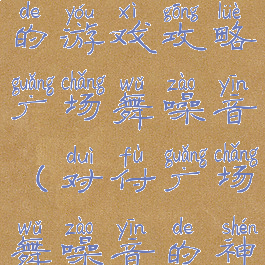 de yóu xì gōng lüè
的游戏攻略
guǎng chǎng wǔ zào yīn
广场舞噪音
duì fù guǎng chǎng
（对付广场
wǔ zào yīn de shén
舞噪音的神